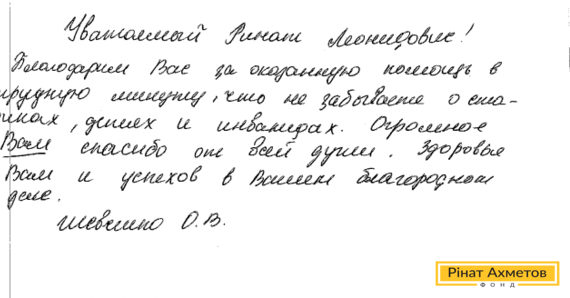 Уважаемый Ринат Леонидович!
Благодарим Вас за оказанную помощь в
трудную минуту, что не забываете о ста-
риках, детях и инвалидах. Огромное
Вам спасибо от всей души. Здоровья
Вам и успехов в Вашем благородном
деле.
О.В.
Рінат Ахметов
ФОНД